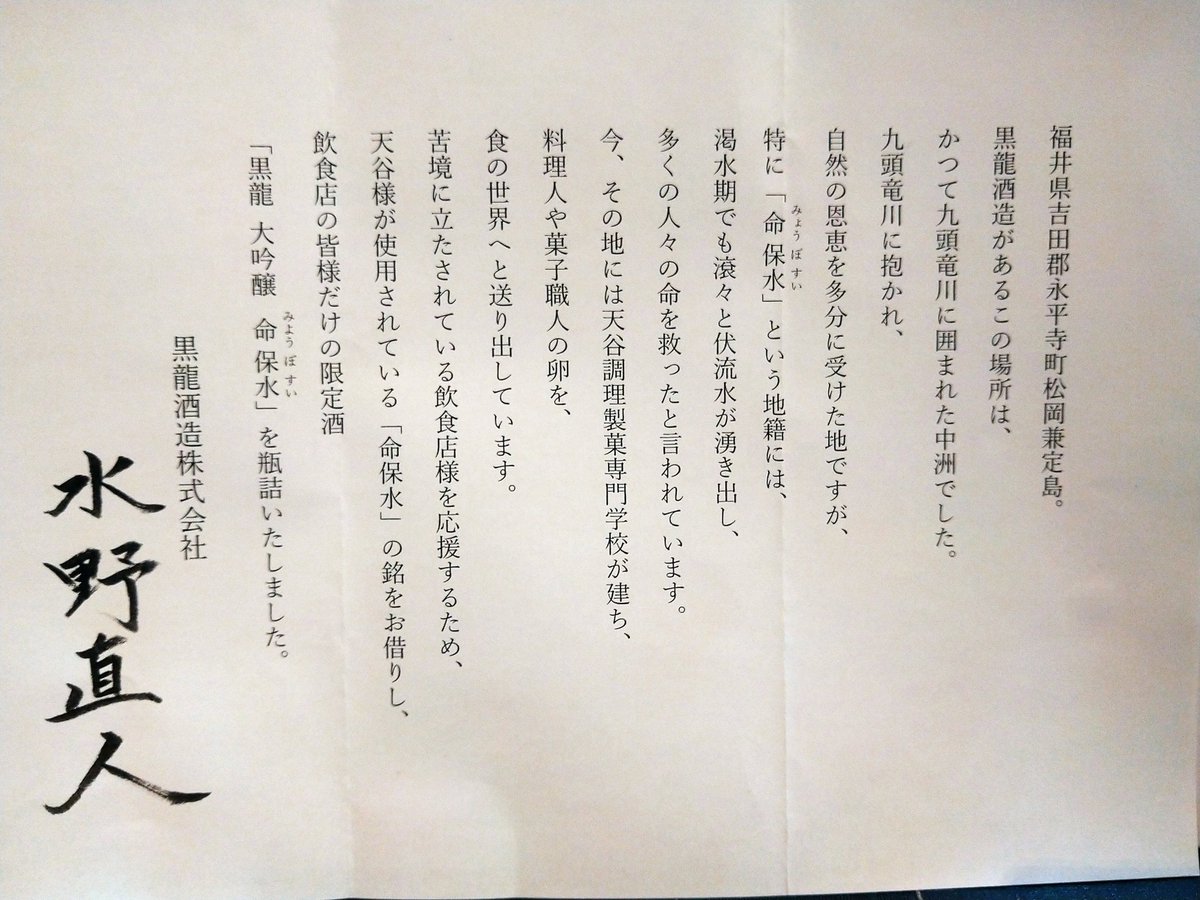 福井県吉田郡永平寺町松岡兼定島。
黒龍酒造があるこの場所は、
かつて九頭竜川に囲まれた中洲でした。
九頭竜川に抱かれ、
自然の恩恵を多分に受けた地ですが、
特に「命保水」という地籍には、
みょうぼすい
渇水期でも滾々と伏流水が湧き出し、
多くの人々の命を救ったと言われています。
今、その地には天谷調理製菓専門学校が建ち、
料理人や菓子職人の卵を、
食の世界へと送り出しています。
苦境に立たされている飲食店様を応援するため、
天谷様が使用されている「命保水」の銘をお借りし、
飲食店の皆様だけの限定酒
「黒龍 大吟醸 命保水」を瓶詰いたしました。
みようぼすい
黒龍酒造株式会社
水野直人